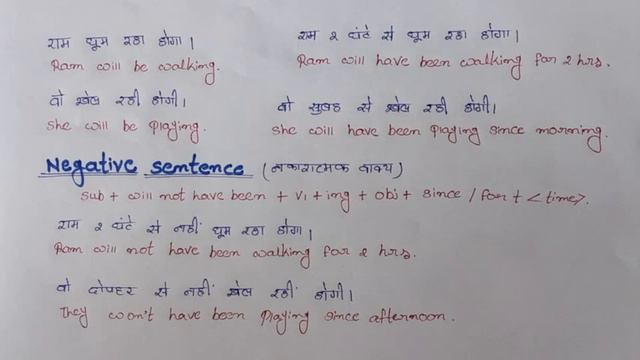 राम घूम रहा होगा।
Ram will be walking.
राम 2 घंटे से घूम रहा होगा।
Ram will have been walking for 2 hrs.
वो खेल रही होगी।
She will be playing.
वो सुबह से खेल रही होगी।
She will have been playing since morning.
Negative sentence (नकारात्मक वाक्य)
sub + will not have been + v1 + ing + obj + since / for + <time>.
राम 2 घंटे से नहीं घूम रहा होगा।
Ram will not have been walking for 2 hrs.
वो दोपहर से नहीं खेल रहीं होगी।
They won't have been playing since afternoon.